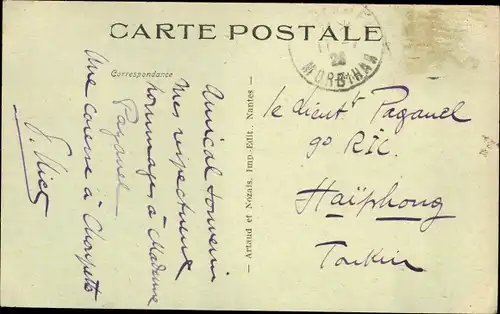 CARTE POSTALE
Correspondance
Amical souvenir
Mes respectueux
hommages à Madame
Paganel
Une caresse à
— Artaud et Nozais, Imp.-Edit., Nantes —
MORBIHAN
26
le Lieut<sup>t</sup> Paganel
9e RIC
Haïphong
Tonkin